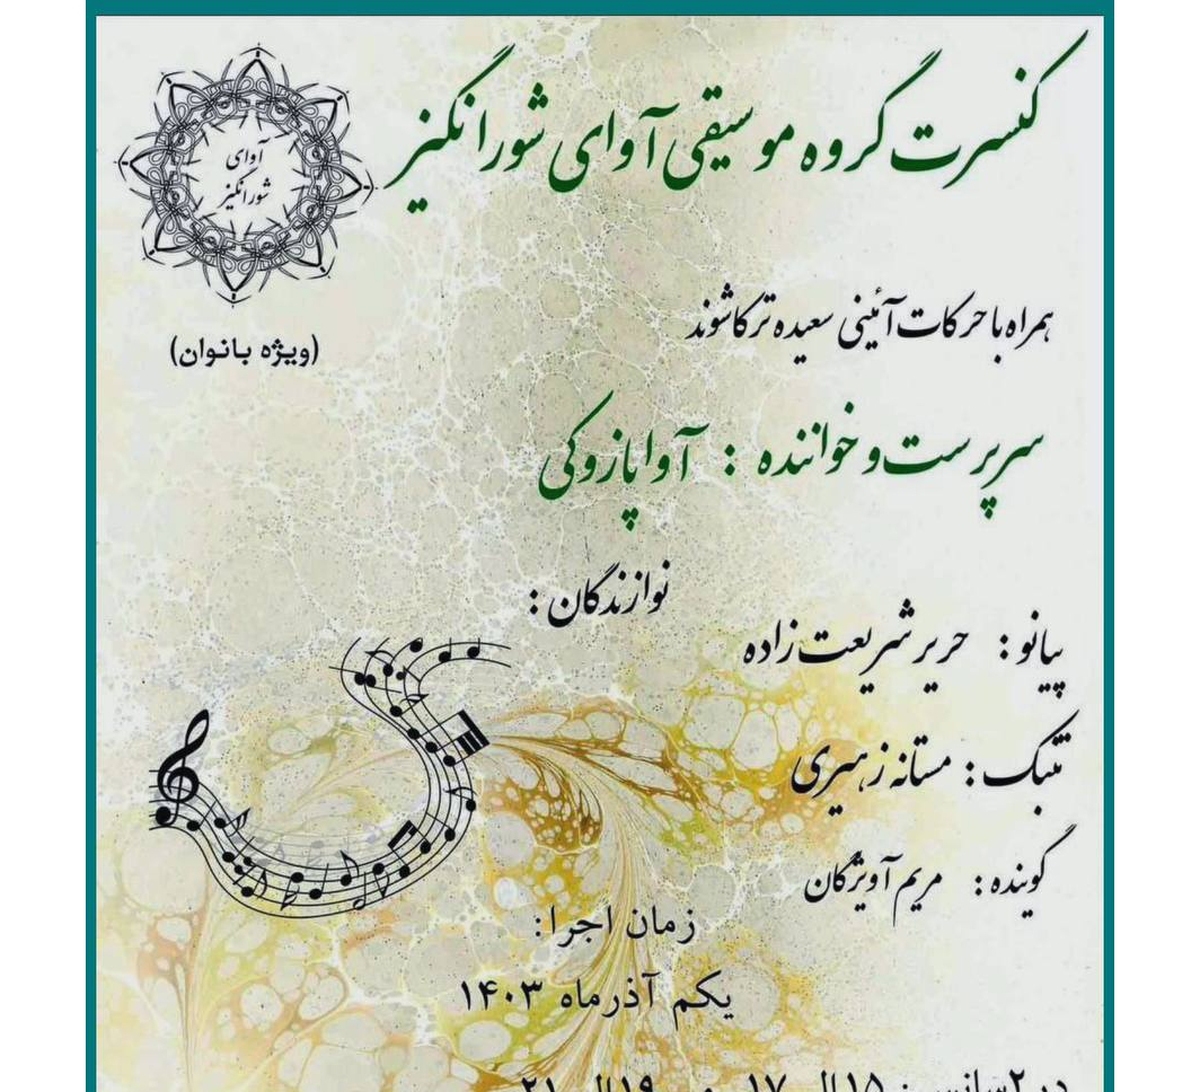 کنسرت گروه موسیقی آوای شورانگیز
آوای
شورانگیز
(ویژه بانوان)
همراه با حرکات آئینی سعیده ترکاشوند
سرپرست و خواننده : آوا پازوکی
نوازندگان :
پیانو : حریر شریعت زاده
تنبک : مستانه زهیری
گوینده : مریم آویژگان
زمان اجرا:
یکم آذرماه ۱۴۰۳
در ۲ سانس: ۱۵ الی ۱۷ و ۱۹ الی ۲۱